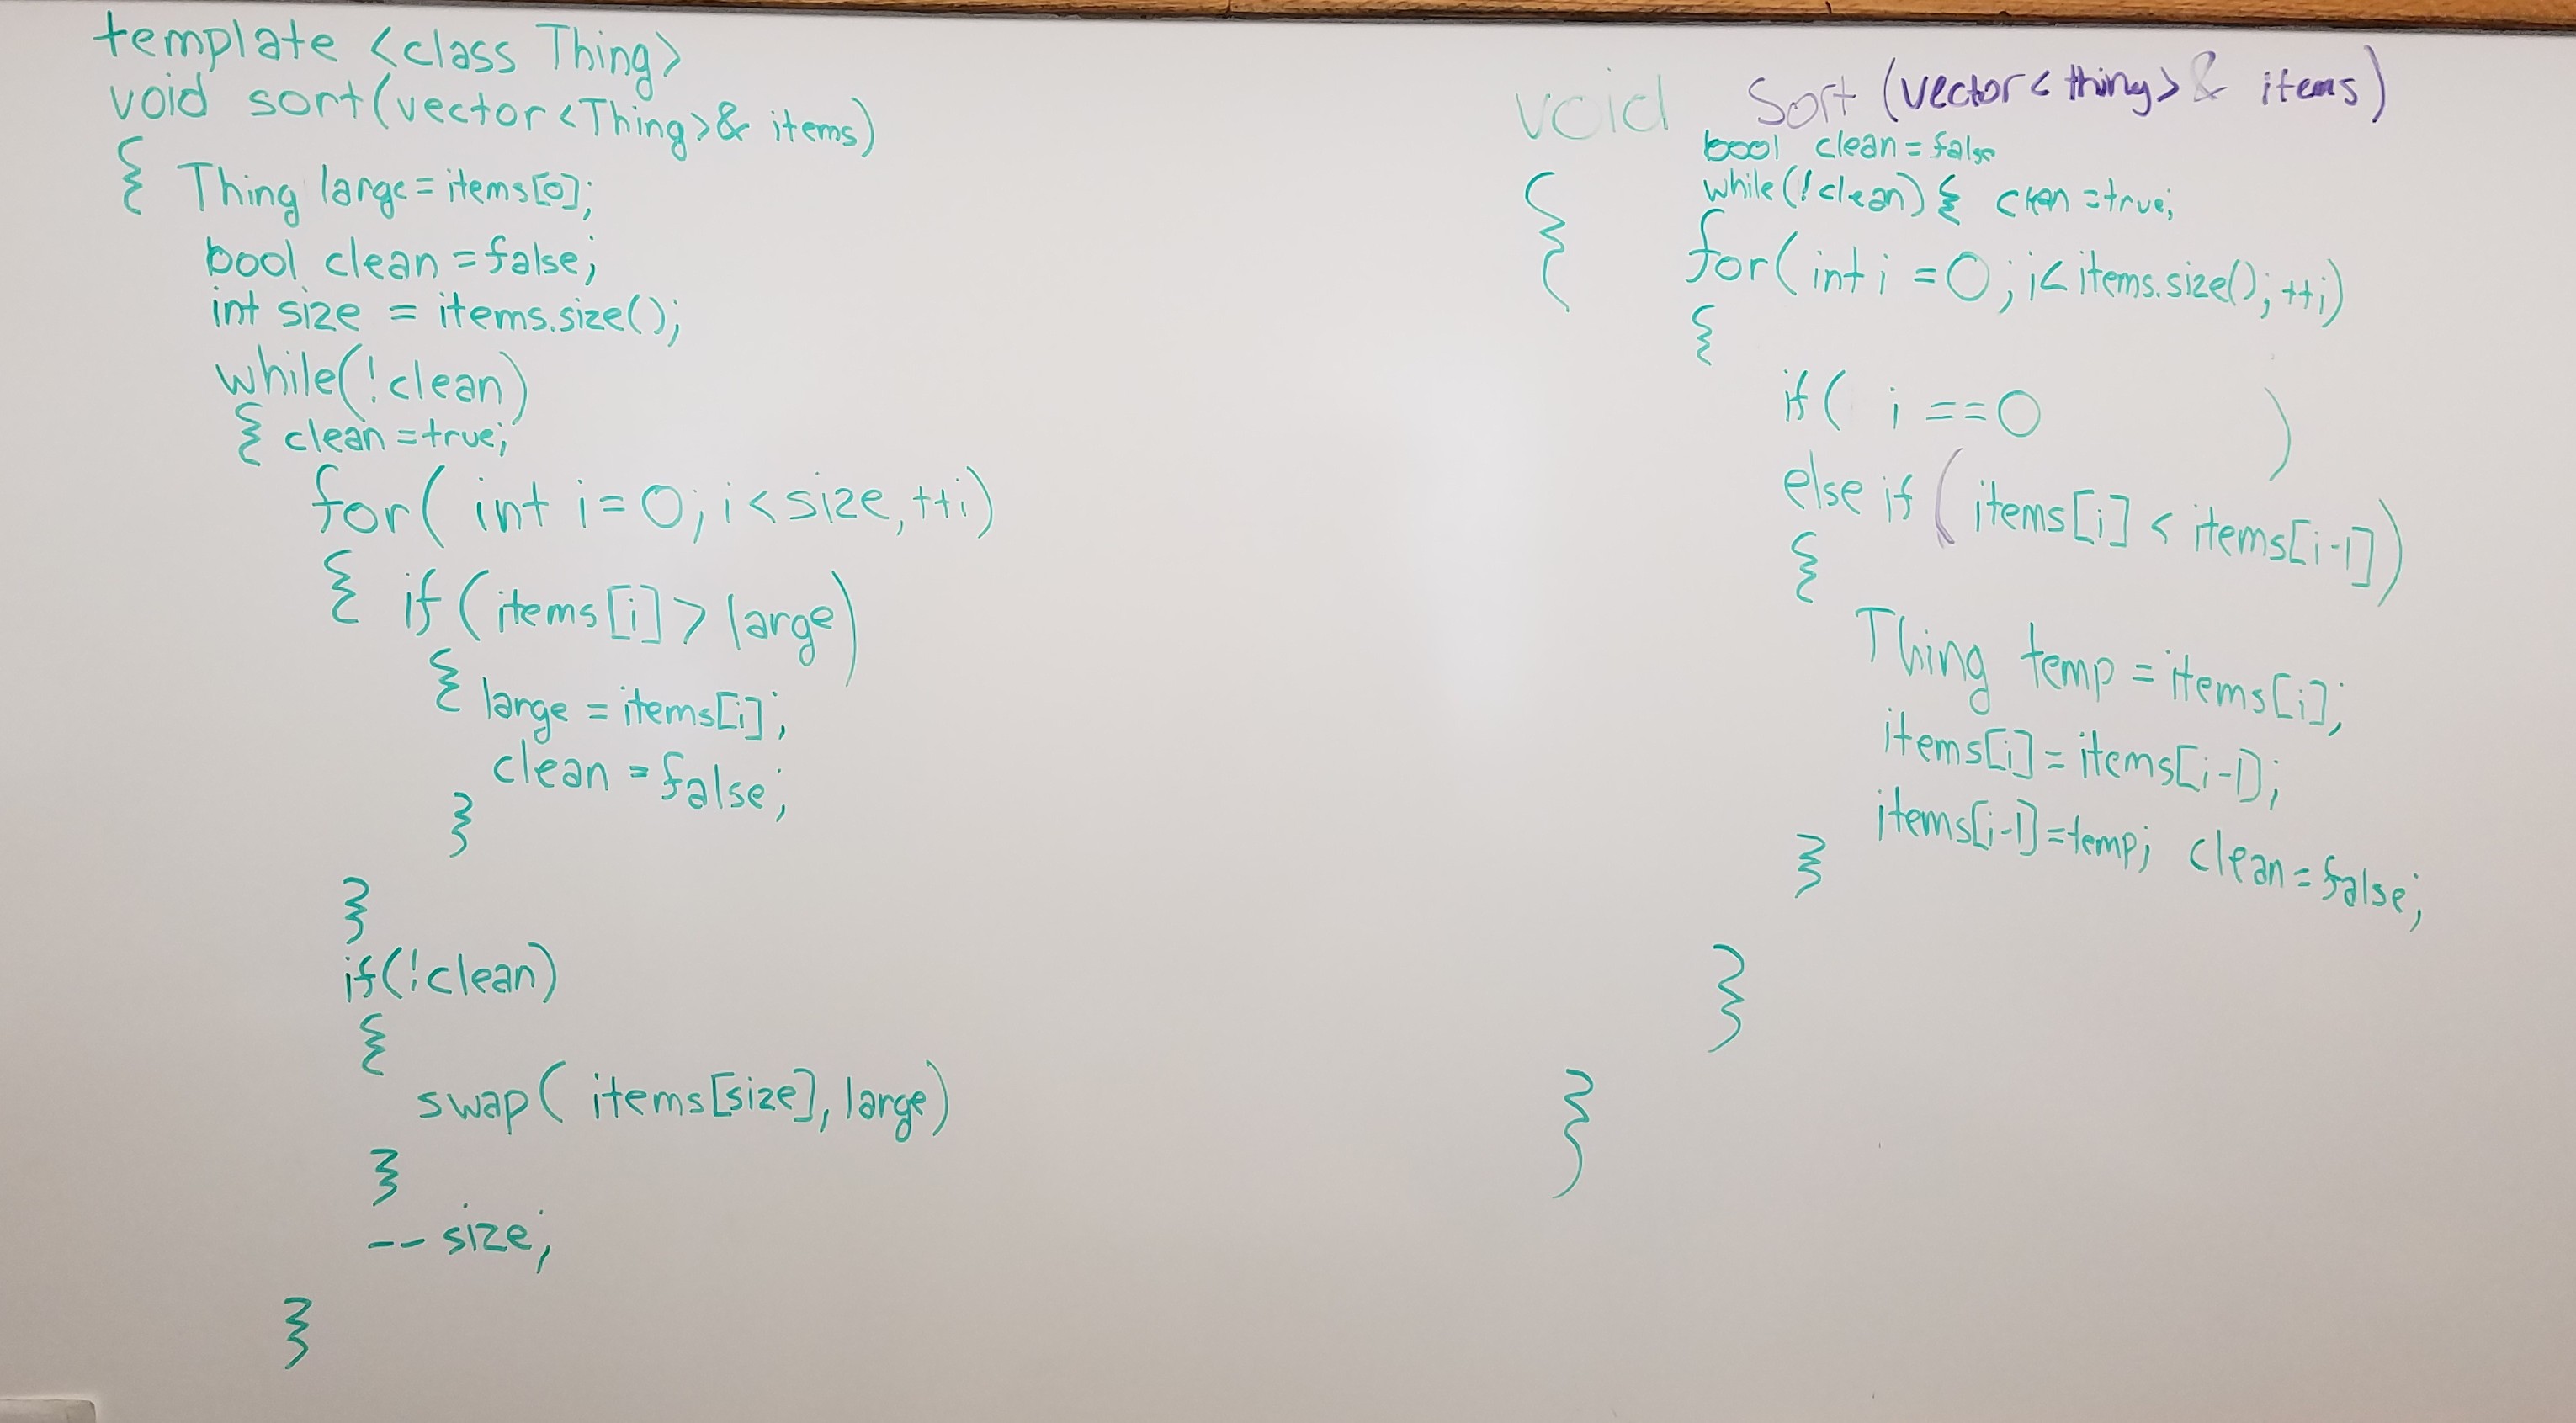 template <class Thing>
void sort(vector<Thing>& items)
{ Thing large = items[0];
bool clean = false;
int size = items.size();
while(!clean)
{ clean = true;
for( int i = 0; i < size, ++i)
{ if (items[i] > large)
{ large = items[i];
clean = false;
}
}
if(!clean)
{
swap( items[size], large)
}
-- size;
}
void Sort (vector< thing> & items)
bool clean = false
{ while(!clean) { clean = true;
for( int i = 0; i < items.size(); ++i)
{
if( i == 0 )
else if (items[i] < items[i-1])
{
Thing temp = items[i];
items[i] = items[i-1];
items[i-1] = temp; clean = false;
}
}
}